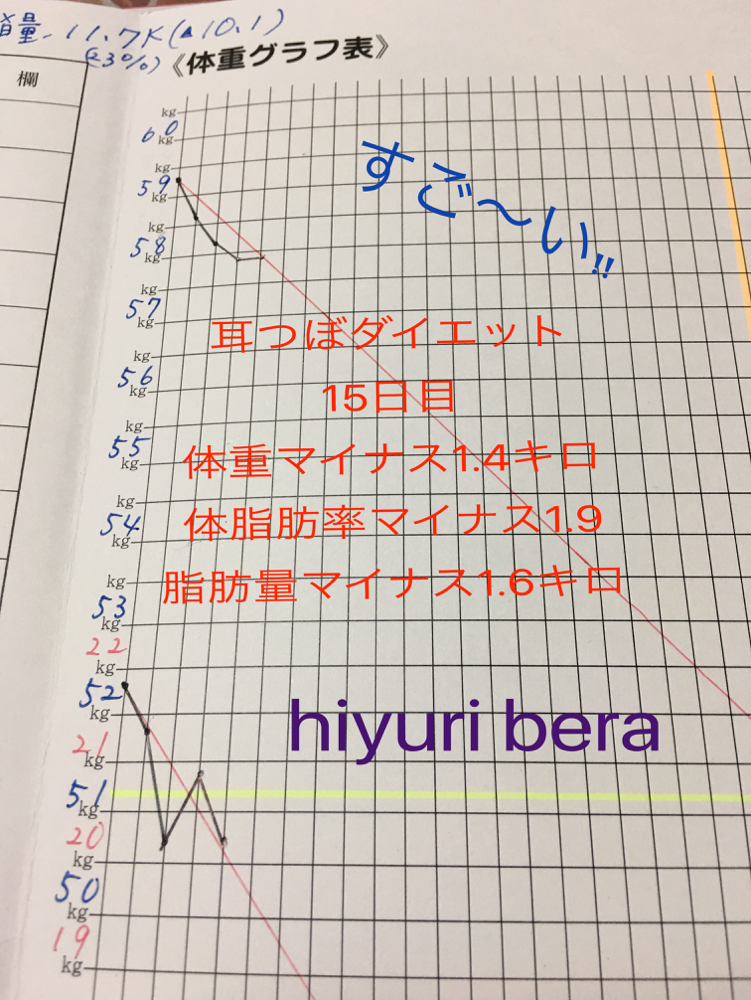 量. 11.7K(▲10.1)
(23%)
《体重グラフ表》
欄
kg
60
kg
kg
59
kg
kg
58
kg
kg
57
kg
kg
56
kg
kg
55
kg
kg
54
kg
kg
53
kg
22
kg
52
kg
21
kg
51
kg
20
kg
50
kg
19
kg
すご〜い!!
耳つぼダイエット
15日目
体重マイナス1.4キロ
体脂肪率マイナス1.9
脂肪量マイナス1.6キロ
hiyuri bera